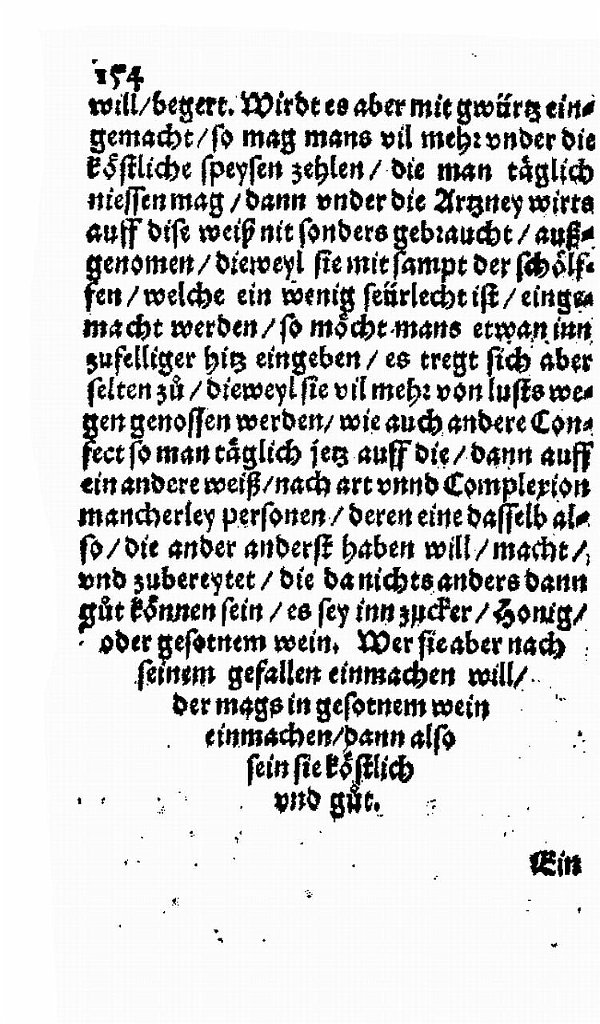 154
will/begert. Wirdt es aber mit gwürtz ein⸗
gemacht/so mag mans vil mehr vnder die
köstliche speysen zehlen/ die man täglich
niessen mag/dann vnder die Artzney wirts
auff dise weiß nit sonders gebraucht/auß⸗
genomen/dieweyl sie mit sampt der schölf⸗
fen/welche ein wenig seürlecht ist/einge⸗
macht werden/so möcht mans etwan inn
zufelliger hitz eingeben/ es tregt sich aber
selten zů/dieweyl sie vil mehr von lusts we⸗
gen genossen werden/wie auch andere Con⸗
fect so man täglich jetz auff die/dann auff
ein andere weiß/nach art vnnd Complexion
mancherley personen/deren eine dasselb al⸗
so/die ander anderst haben will/macht/
vnd zubereytet/die da nichts anders dann
gůt können sein/es sey inn zucker/Honig/
oder gesotnem wein. Wer sie aber nach
seinem gefallen einmachen will/
der mags in gesotnem wein
einmachen/dann also
sein sie köstlich
vnd gůt.
Ein